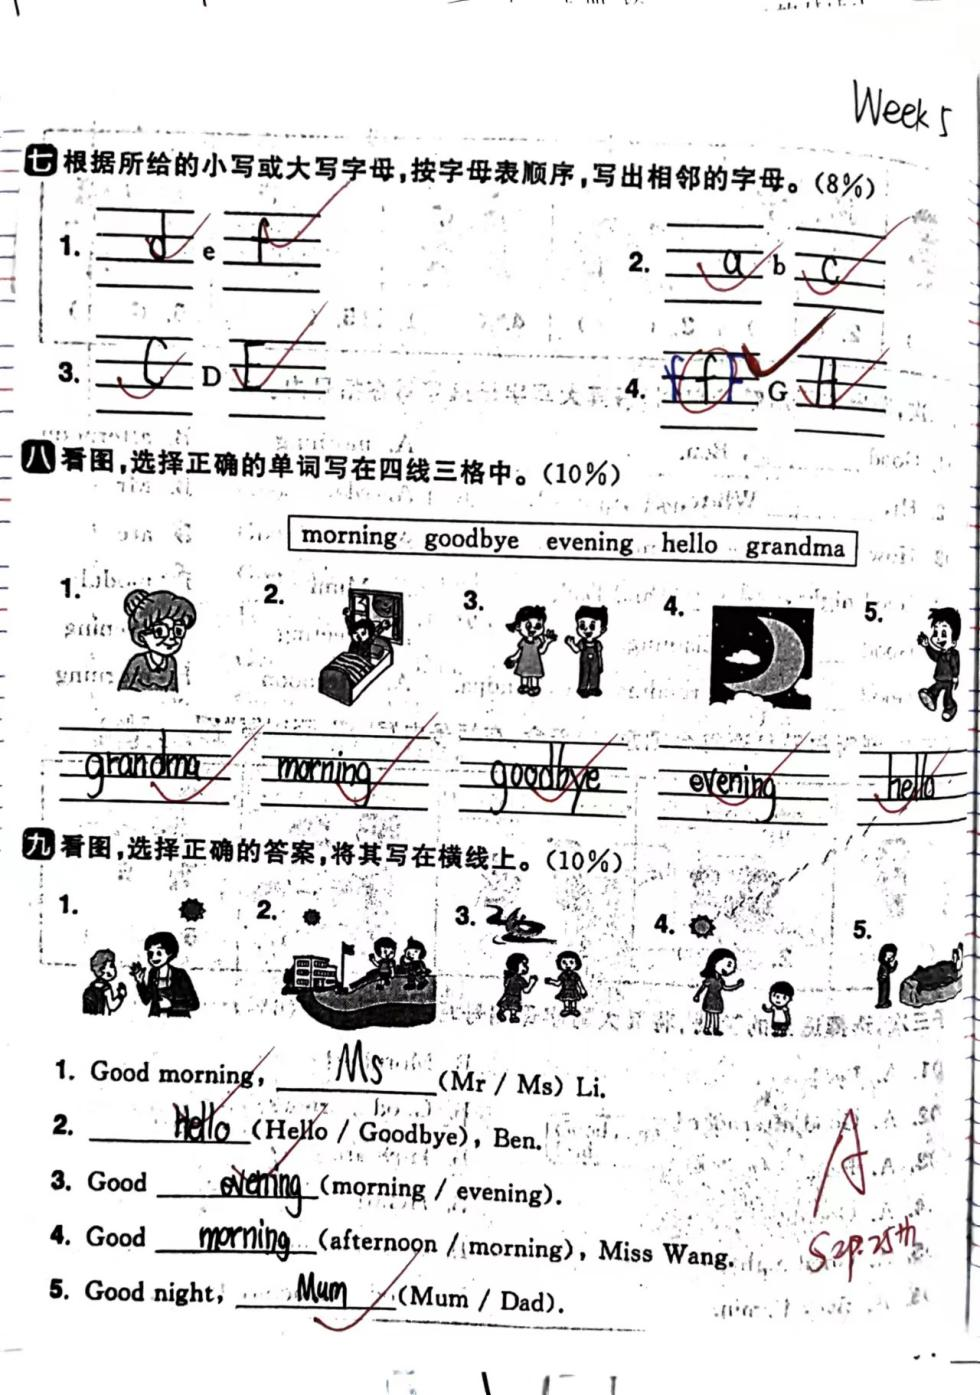 Week 5
七 根据所给的小写或大写字母,按字母表顺序,写出相邻的字母。(8%)
1. d e f 2. a b c
3. C D E 4. F G H
八 看图,选择正确的单词写在四线三格中。(10%)
morning goodbye evening hello grandma
1. 2. 3. 4. 5.
grandma morning goodbye evening hello
九 看图,选择正确的答案,将其写在横线上。(10%)
1. 2. 3. 4. 5.
1. Good morning, Ms (Mr / Ms) Li.
2. Hello (Hello / Goodbye), Ben.
3. Good evening (morning / evening).
4. Good morning (afternoon / morning), Miss Wang.
5. Good night, Mum (Mum / Dad).
A
Sep. 25th